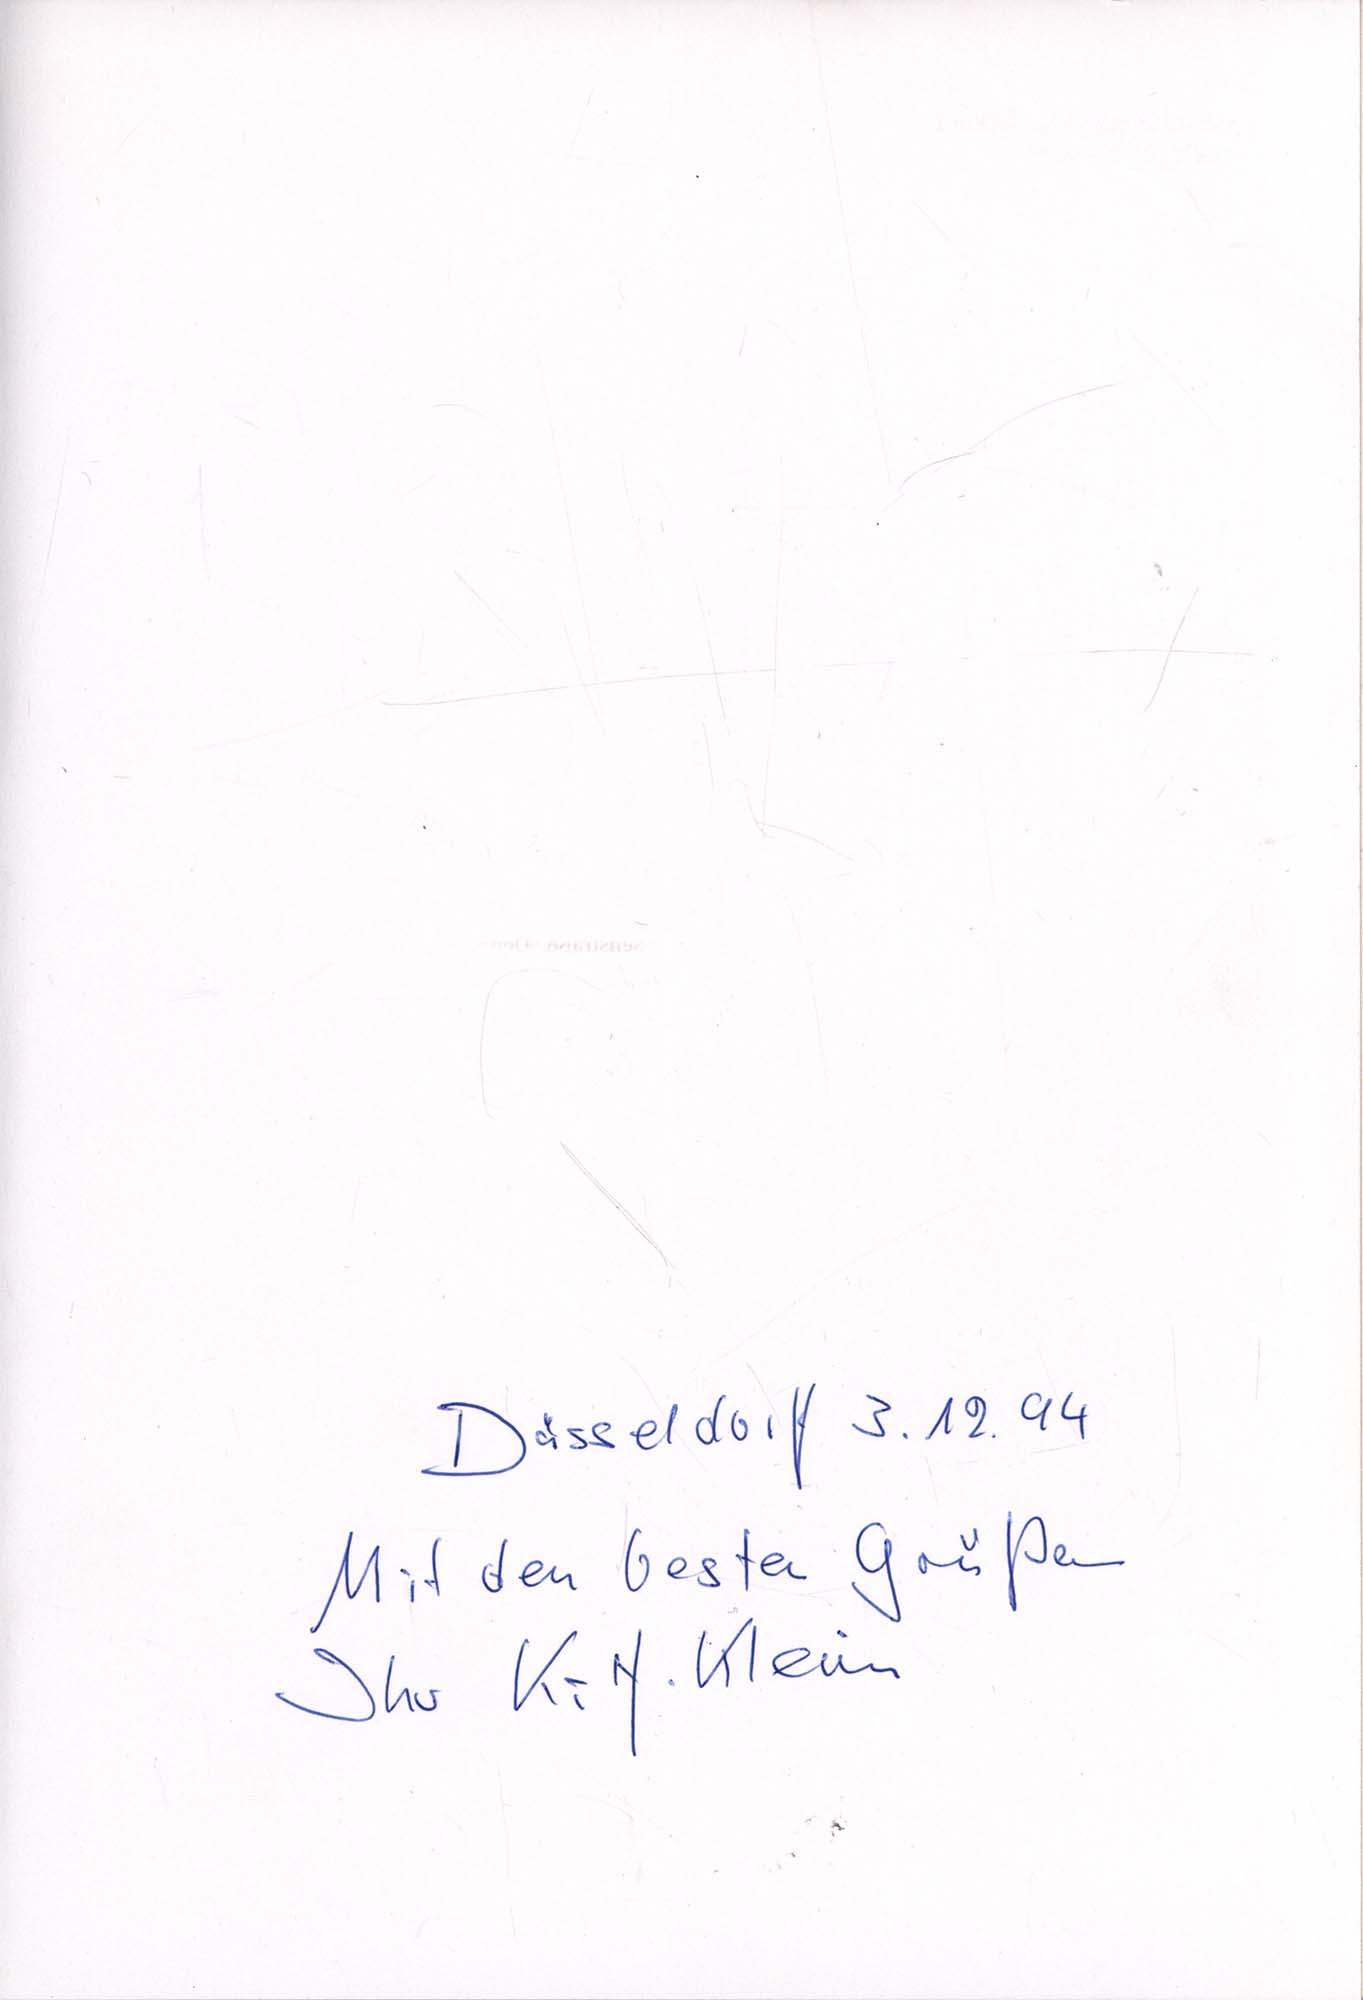 Düsseldorf 3.12.94
Mit den besten Grüßen
Ihr K.-H. Klein